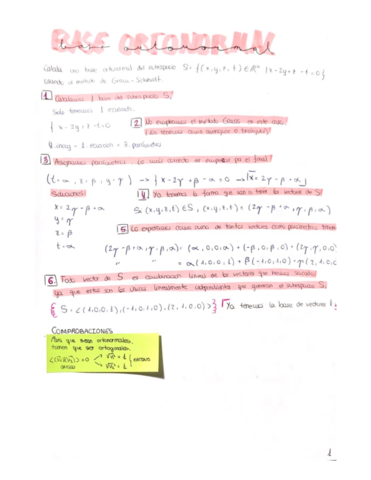 BASE ORTONORMAL
base ortonormal
Calcula una base ortonormal del subespacio S={(x,y,z,t)∈ℝ⁴ |x-2y+z-t=0}
usando el método de Gram-Schmidt.
1 Calculamos 1 base del subespacio S.
Solo tenemos 1 ecuación
{x-2y+z-t=0
2 No emplearemos el método Gauss en este caso
4 incóg - 1 ecuación = 3 parámetros
3 Asignamos parámetros. Lo más correcto es empezar por el final
(t=α, z=β, y=γ) → {x-2γ+β-α=0 → x=2γ-β+α
Soluciones:
x=2γ-β+α
y=γ
z=β
t=α
4 Ya tenemos la forma que van a tener los vectores de S:
Si (x,y,z,t)∈S, (x,y,z,t)=(2γ-β+α,γ,β,α)
5 Lo expresamos como suma de tantos vectores como parámetros
(2γ-β+α,γ,β,α)=(α,0,0,α)+(-β,0,β,0)+(2γ,γ,0,0)
=α(1,0,0,1)+β(-1,0,1,0)+γ(2,1,0,
6 Todo vector de S es combinación lineal de los vectores que hemos sacado
ya que estos son los únicos linealmente independientes que generan el subespacio S.
{S=<(1,0,0,1),(-1,0,1,0),(2,1,0,0)>} Ya tenemos la base de vectores
COMPROBACIONES
Para que sean ortonormales,
tienen que ser ortogonales
1